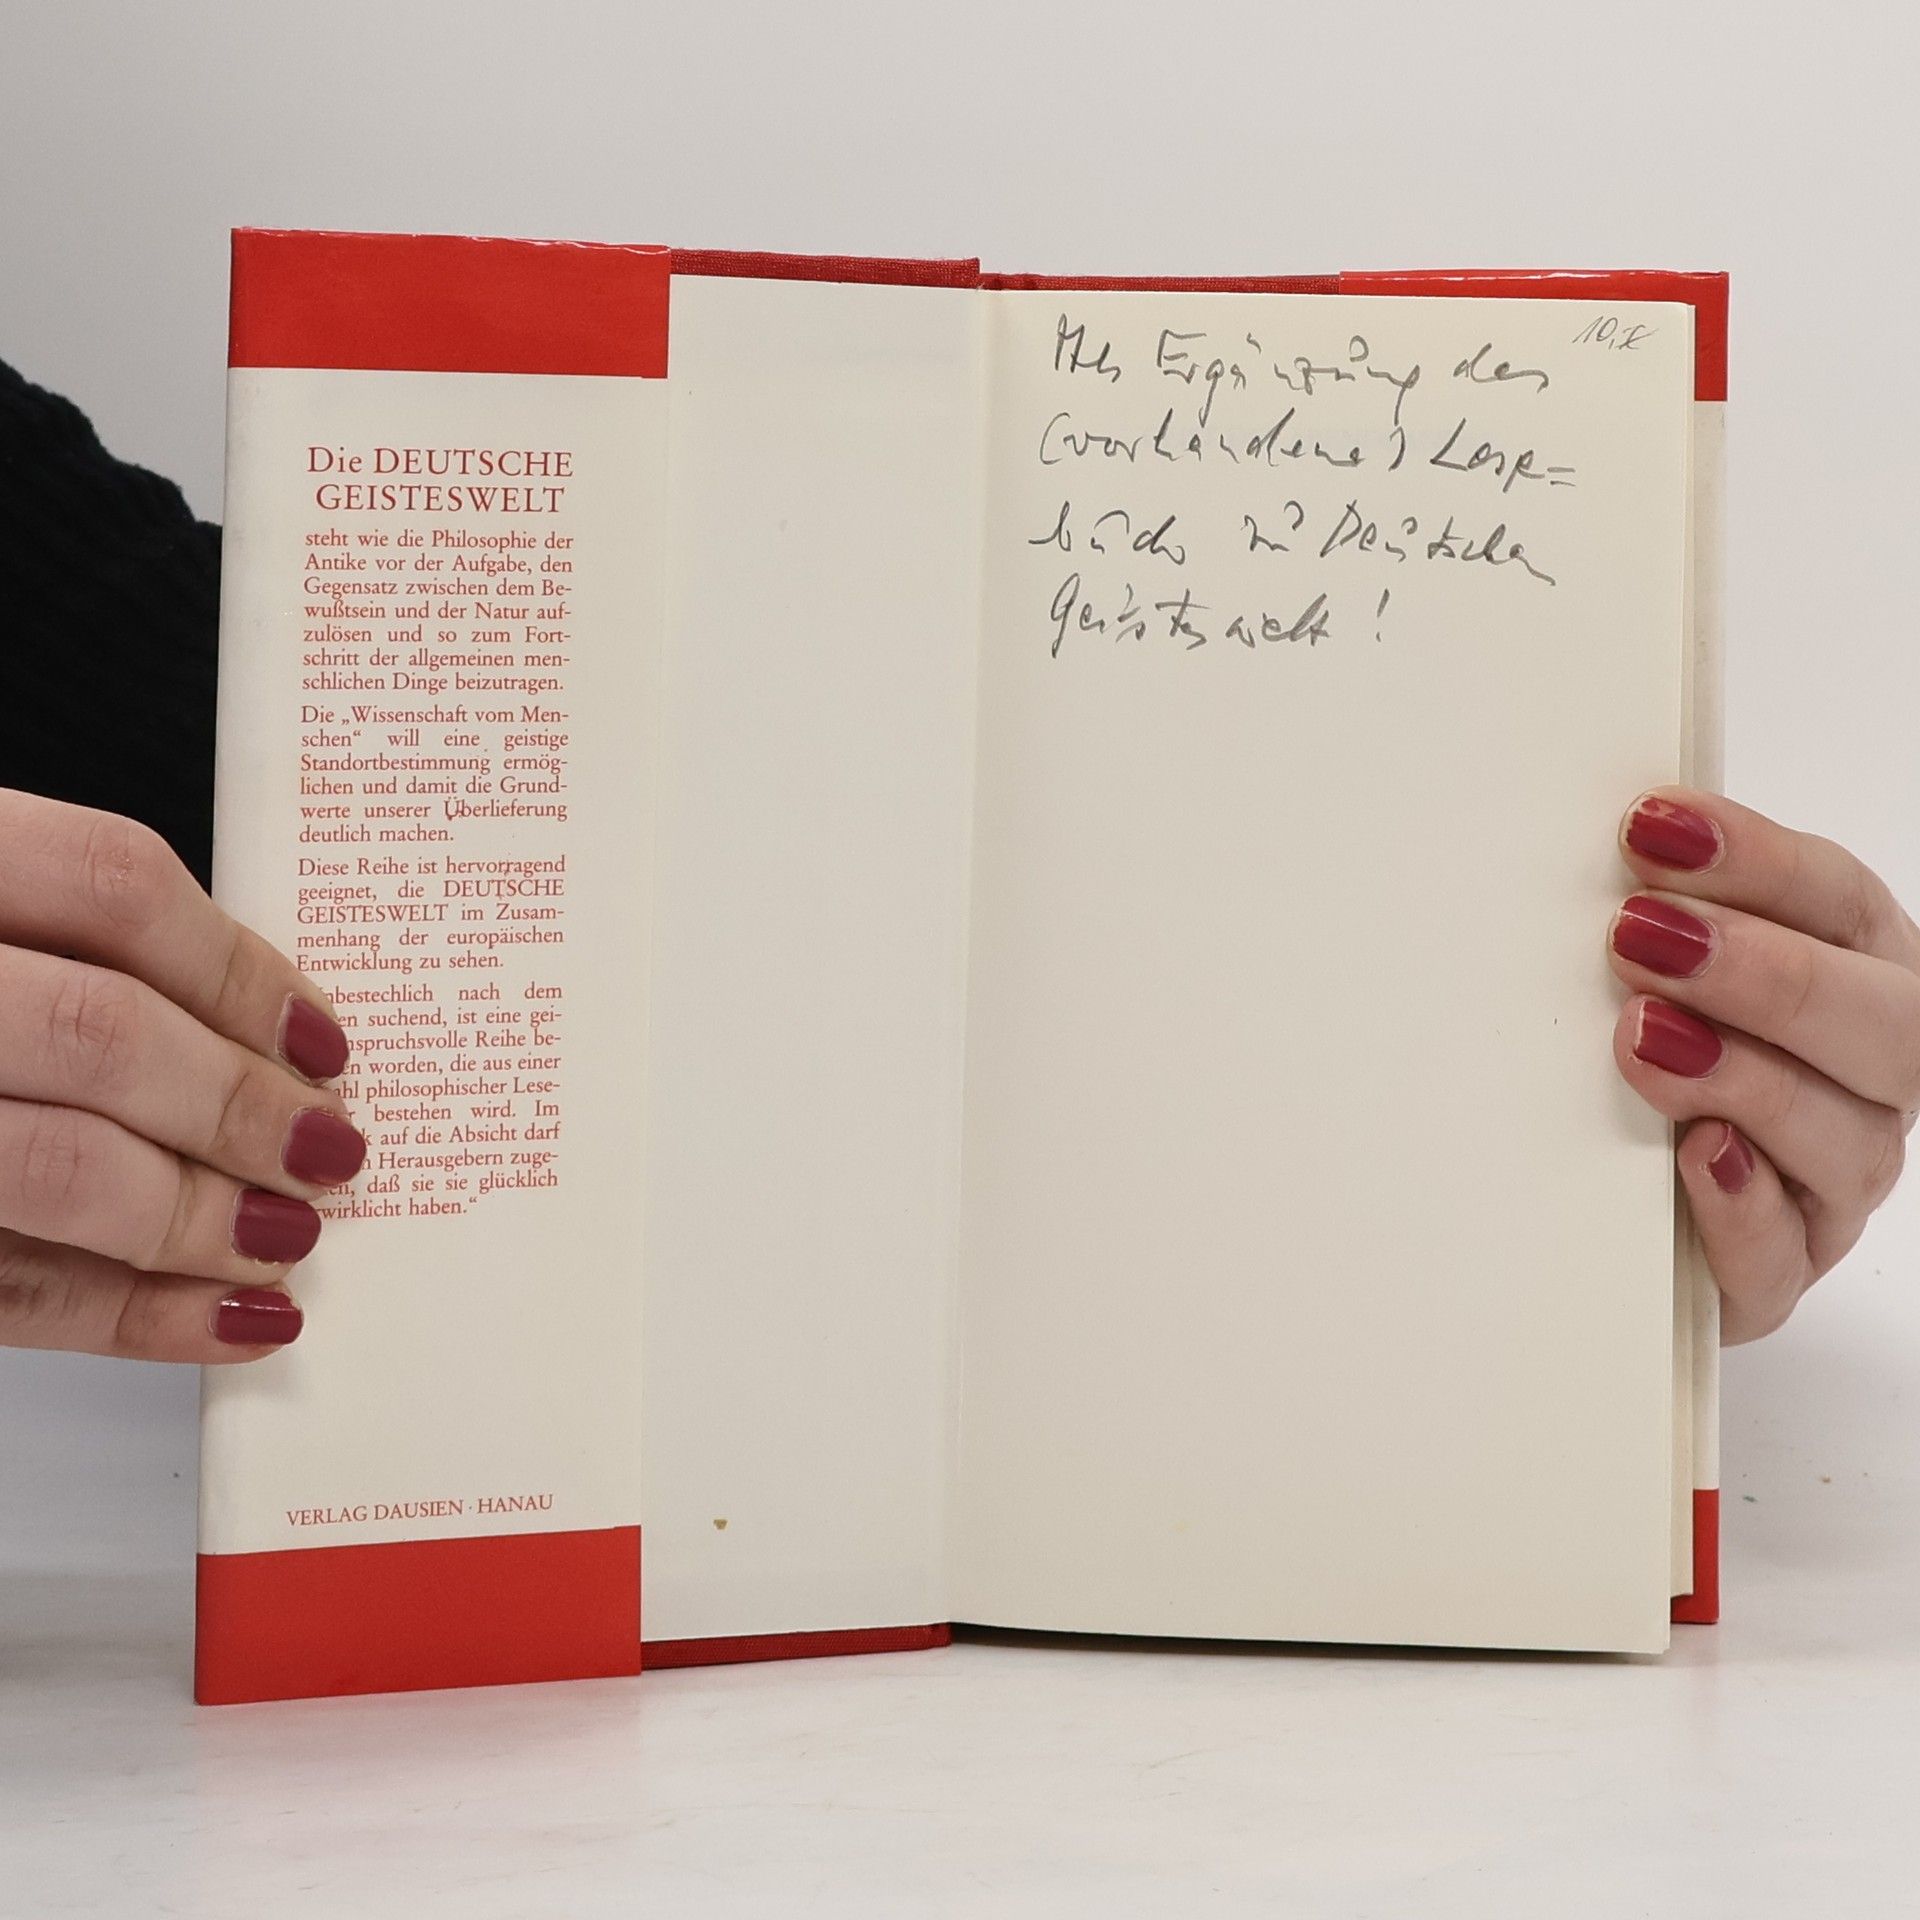 Die DEUTSCHE
GEISTESWELT
steht wie die Philosophie der
Antike vor der Aufgabe, den
Gegensatz zwischen dem Be-
wußtsein und der Natur auf-
zulösen und so zum Fort-
schritt der allgemeinen men-
schlichen Dinge beizutragen.
Die „Wissenschaft vom Men-
schen“ will eine geistige
Standortbestimmung ermög-
lichen und damit die Grund-
werte unserer Überlieferung
deutlich machen.
Diese Reihe ist hervorragend
geeignet, die DEUTSCHE
GEISTESWELT im Zusam-
menhang der europäischen
Entwicklung zu sehen.
nbestechlich nach dem
en suchend, ist eine gei-
nspruchsvolle Reihe be-
en worden, die aus einer
hl philosophischer Lese-
r bestehen wird. Im
k auf die Absicht darf
n Herausgebern zuge-
en, daß sie sie glücklich
wirklicht haben.“
VERLAG DAUSIEN · HANAU
Als Ergänzung des
(vorhandene) Lese=
buchs zu Deutschen
Geisteswelt!